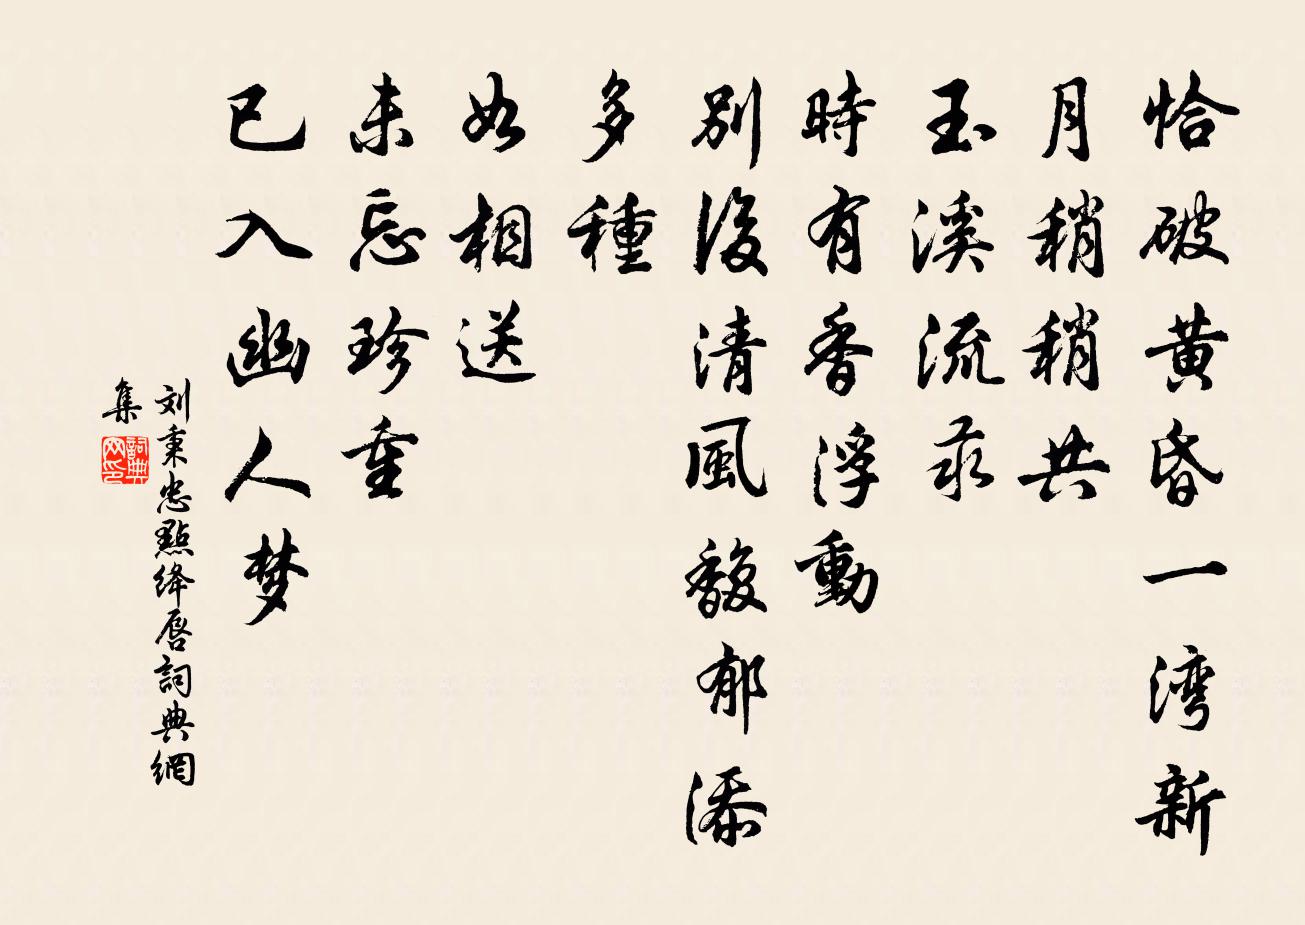 恰破黄昏一湾新
月稍稍共
玉溪流汞
時有香浮動
別後清風馥郁添
多種
如相送
未忘珍重
已入幽人梦
刘秉忠點绛唇詞典網
集
詞典
网印